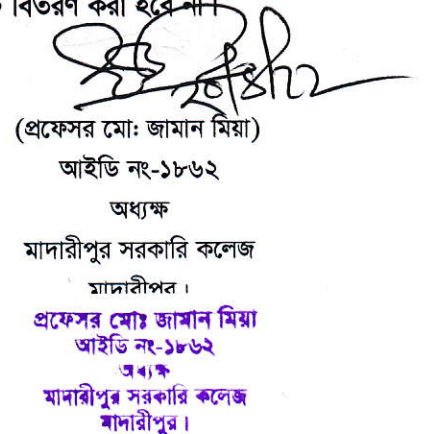 বিতরণ করা হবে না।
(প্রফেসর মো: জামান মিয়া)
আইডি নং-১৮৬২
অধ্যক্ষ
মাদারীপুর সরকারি কলেজ
মাদারীপুর।
প্রফেসর মোঃ জামান মিয়া
আইডি নং-১৮৬২
অধ্যক্ষ
মাদারীপুর সরকারি কলেজ
মাদারীপুর।